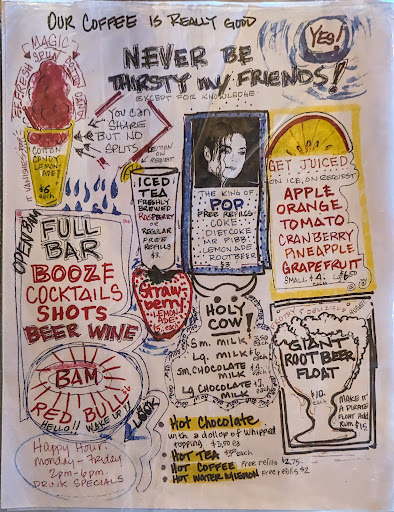 OUR COFFEE IS REALLY GOOD
YES!
NEVER BE
THIRSTY MY FRIENDS!
EXCEPT FOR KNOWLEDGE
MAGIC
SPUN
COTTON CANDY
IT VANISHES
COTTON
CANDY
LEMON-
ADE!
$6
each
YOU CAN
SHARE
BUT NO
SPLITS
LEMON
REQUEST
ICED
TEA
FRESHLY
BREWED
RASPBERRY
OR
REGULAR
FREE
REFILLS
$3
THE KING OF
POP
FREE REFILLS
COKE
DIET COKE
MR PIBB
LEMONADE
ROOT BEER
$3
GET JUICED
ON ICE, ON REQUEST
APPLE
ORANGE
TOMATO
CRANBERRY
PINEAPPLE
GRAPEFRUIT
SMALL $4
OPEN BAR
FULL
BAR
BOOZE
COCKTAILS
SHOTS
BEER WINE
Straw
berry
LEMON
ADE
HOLY
COW!
Sm. MILK
Lg. MILK
Sm. CHOCOLATE
MILK
Lg CHOCOLATE
MILK
GIANT
ROOT BEER
FLOAT
$10
each
MAKE IT
A PIRATE
FLOAT ADD
RUM $15
BAM
RED BULL
HELLO!! WAKE UP!!
LOOK
Happy Hour
Monday - Friday
2pm-6pm
DRINK SPECIALS
HOT Chocolate
with a dollop of whipped
topping $3.50 ea
HOT TEA
HOT COFFEE Free refills $2.75
HOT WATER & LEMON Free refills $2